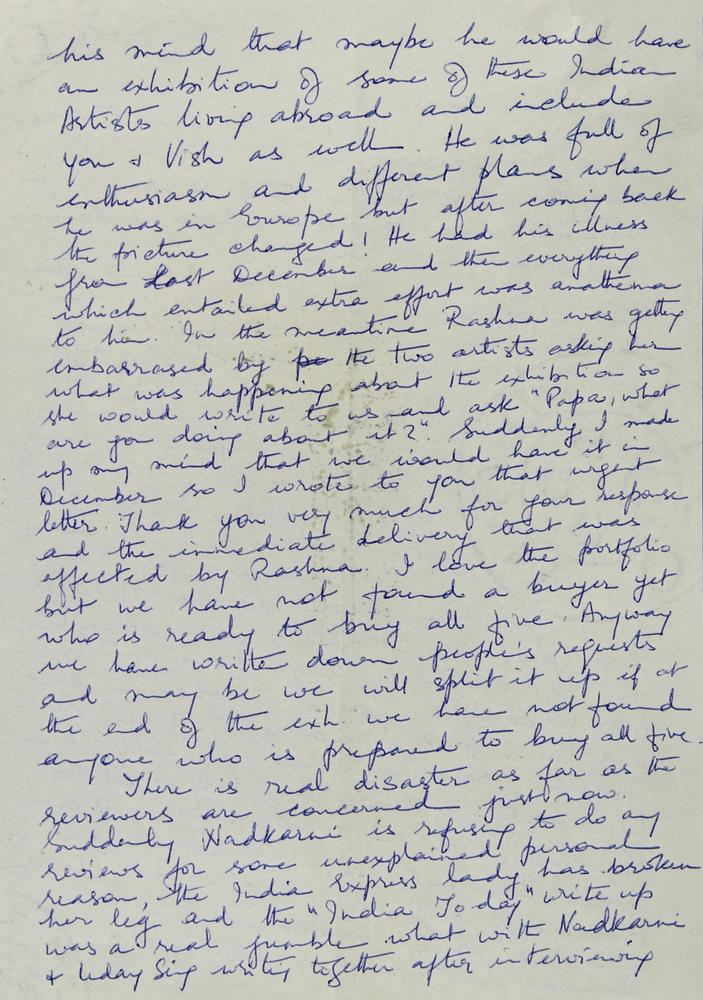 his mind that maybe he would have
an exhibition of some of these Indian
Artists living abroad and include
you & Vish as well. He was full of
enthusiasm and different plans when
he was in Europe but after coming back
the picture changed! He had his illness
from last December and then everything
which entailed extra effort was anathema
to him. In the meantime Rashna was getting
embarrased by the two artists asking her
what was happening about the exhibition so
she would write to us and ask "Papa, what
are you doing about it?" Suddenly I made
up my mind that we would have it in
December so I wrote to you that urgent
letter. Thank you very much for your response
and the immediate delivery that was
affected by Rashna. I love the portfolio
but we have not found a buyer yet
who is ready to buy all five. Anyway
we have written down people's requests
and may be we will split it up if at
the end of the exh. we have not found
anyone who is prepared to buy all five.
There is real disaster as far as the
reviewers are concerned just now.
Suddenly Nadkarni is refusing to do any
reviews for some unexplained personal
reason, the India Express lady has broken
her leg and the "India Today" write up
was a real fumble what with Nadkarni
& Uday Sing writing together after interviewing